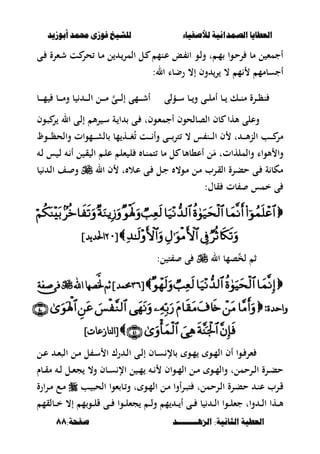 العطايا الصمدانية للأصفياء للشيخ فوزى محمد أبوزيد
أجمعين ما فرحوا بهم، ولو انفض عنهم كل المريدين ما تحركت شعرة فى
أجسامهم لأنهم لا يريدون إلا رضاء الله:
فنظرة منك يا سؤلى ويا أملى أشهى إلىَّ من الدنيا وما فيها
وعلى هذا كان الصالحون أجمعون، فى بداية سيرهم إلى الله يركبون
مركب الزهد، لأن النفس لا تتربى وأنت تُغذيها بالشهوات والحظوظ
والأهواء والملذات، مَن أعطاها كل ما تتمناه فليعلم علم اليقين أنه ليس له
مكانة فى حضرة القرب من مولاه جل فى علاه، لأن الله ﷻ وصف الدنيا
فى خمس صفات فقال:
﴿ ٱعْلَمُوٓا۟ أَنَّمَا ٱلْحَيَوٰةُ ٱلدُّنْيَا لَعِبٌ وَلَهْوٌ وَزِينَةٌ وَتَفَاخُرٌۢ بَيْنَكُمْ
وَتَكَاثُرٌ فِى ٱلْأَمْوَٰلِ وَٱلْأَوْلَـٰدِ ﴾ [٢٠الحديد]
ثم لخَّصها الله ﷻ فى صفتين:
﴿ إِنَّمَا ٱلْحَيَوٰةُ ٱلدُّنْيَا لَعِبٌ وَلَهْوٌ ﴾ [٣٦محمد] ثم لخَّصها الله ﷻ فى صفة
واحدة: ﴿ وَأَمَّا مَنْ خَافَ مَقَامَ رَبِّهِۦ وَنَهَى ٱلنَّفْسَ عَنِ ٱلْهَوَىٰ ﴿٤٠﴾
فَإِنَّ ٱلْجَنَّةَ هِىَ ٱلْمَأْوَىٰ ﴿٤١﴾ ﴾ [النازعات]
فعرفوا أن الهوى يهوى بالإنسان إلى الدرك الأسفل من البعد عن
حضرة الرحمن، والهوى من الهوان لأنه يهين الإنسان ولا يجعل له مقام
قرب عند حضرة الرحمن، فتبرأوا من الهوى، وتابعوا الحبيب ﷺ مع مرارة
هذا الدوا، جعلوا الدنيا فى أيديهم ولم يجعلوا فى قلوبهم إلا خالقهم
العطية الثانية: الزهـــــد صفحة:٨٨